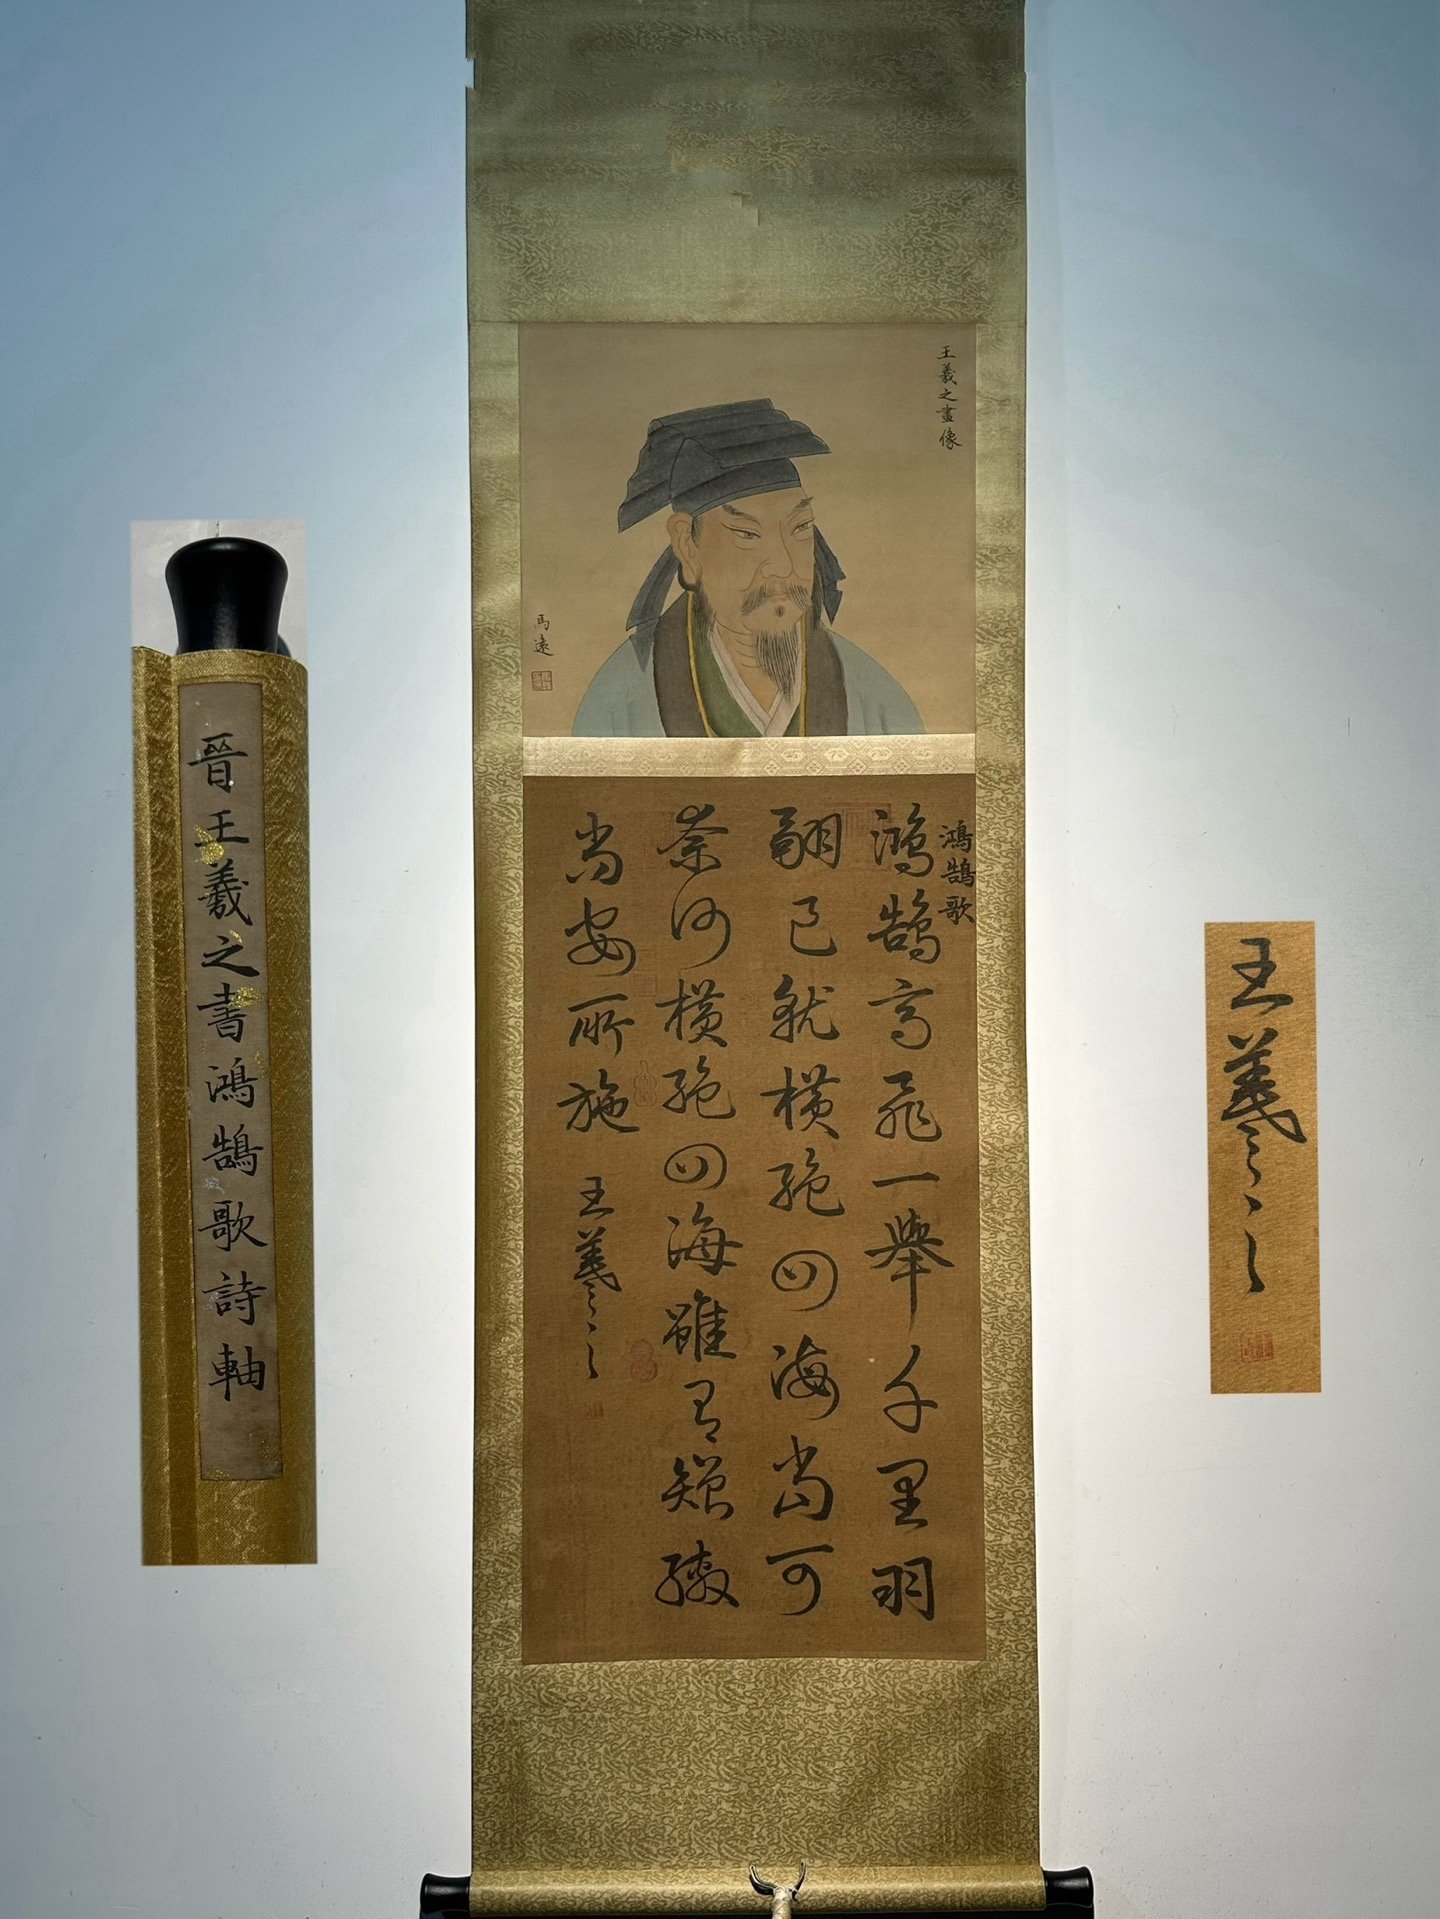 王羲之畫像
馬遠
鴻鵠歌
鴻鵠高飛一舉千里羽
翮已就橫絕四海當可
奈何橫絕四海雖有矰繳
尚安所施
王羲之
晉王羲之書鴻鵠歌詩軸
王羲之